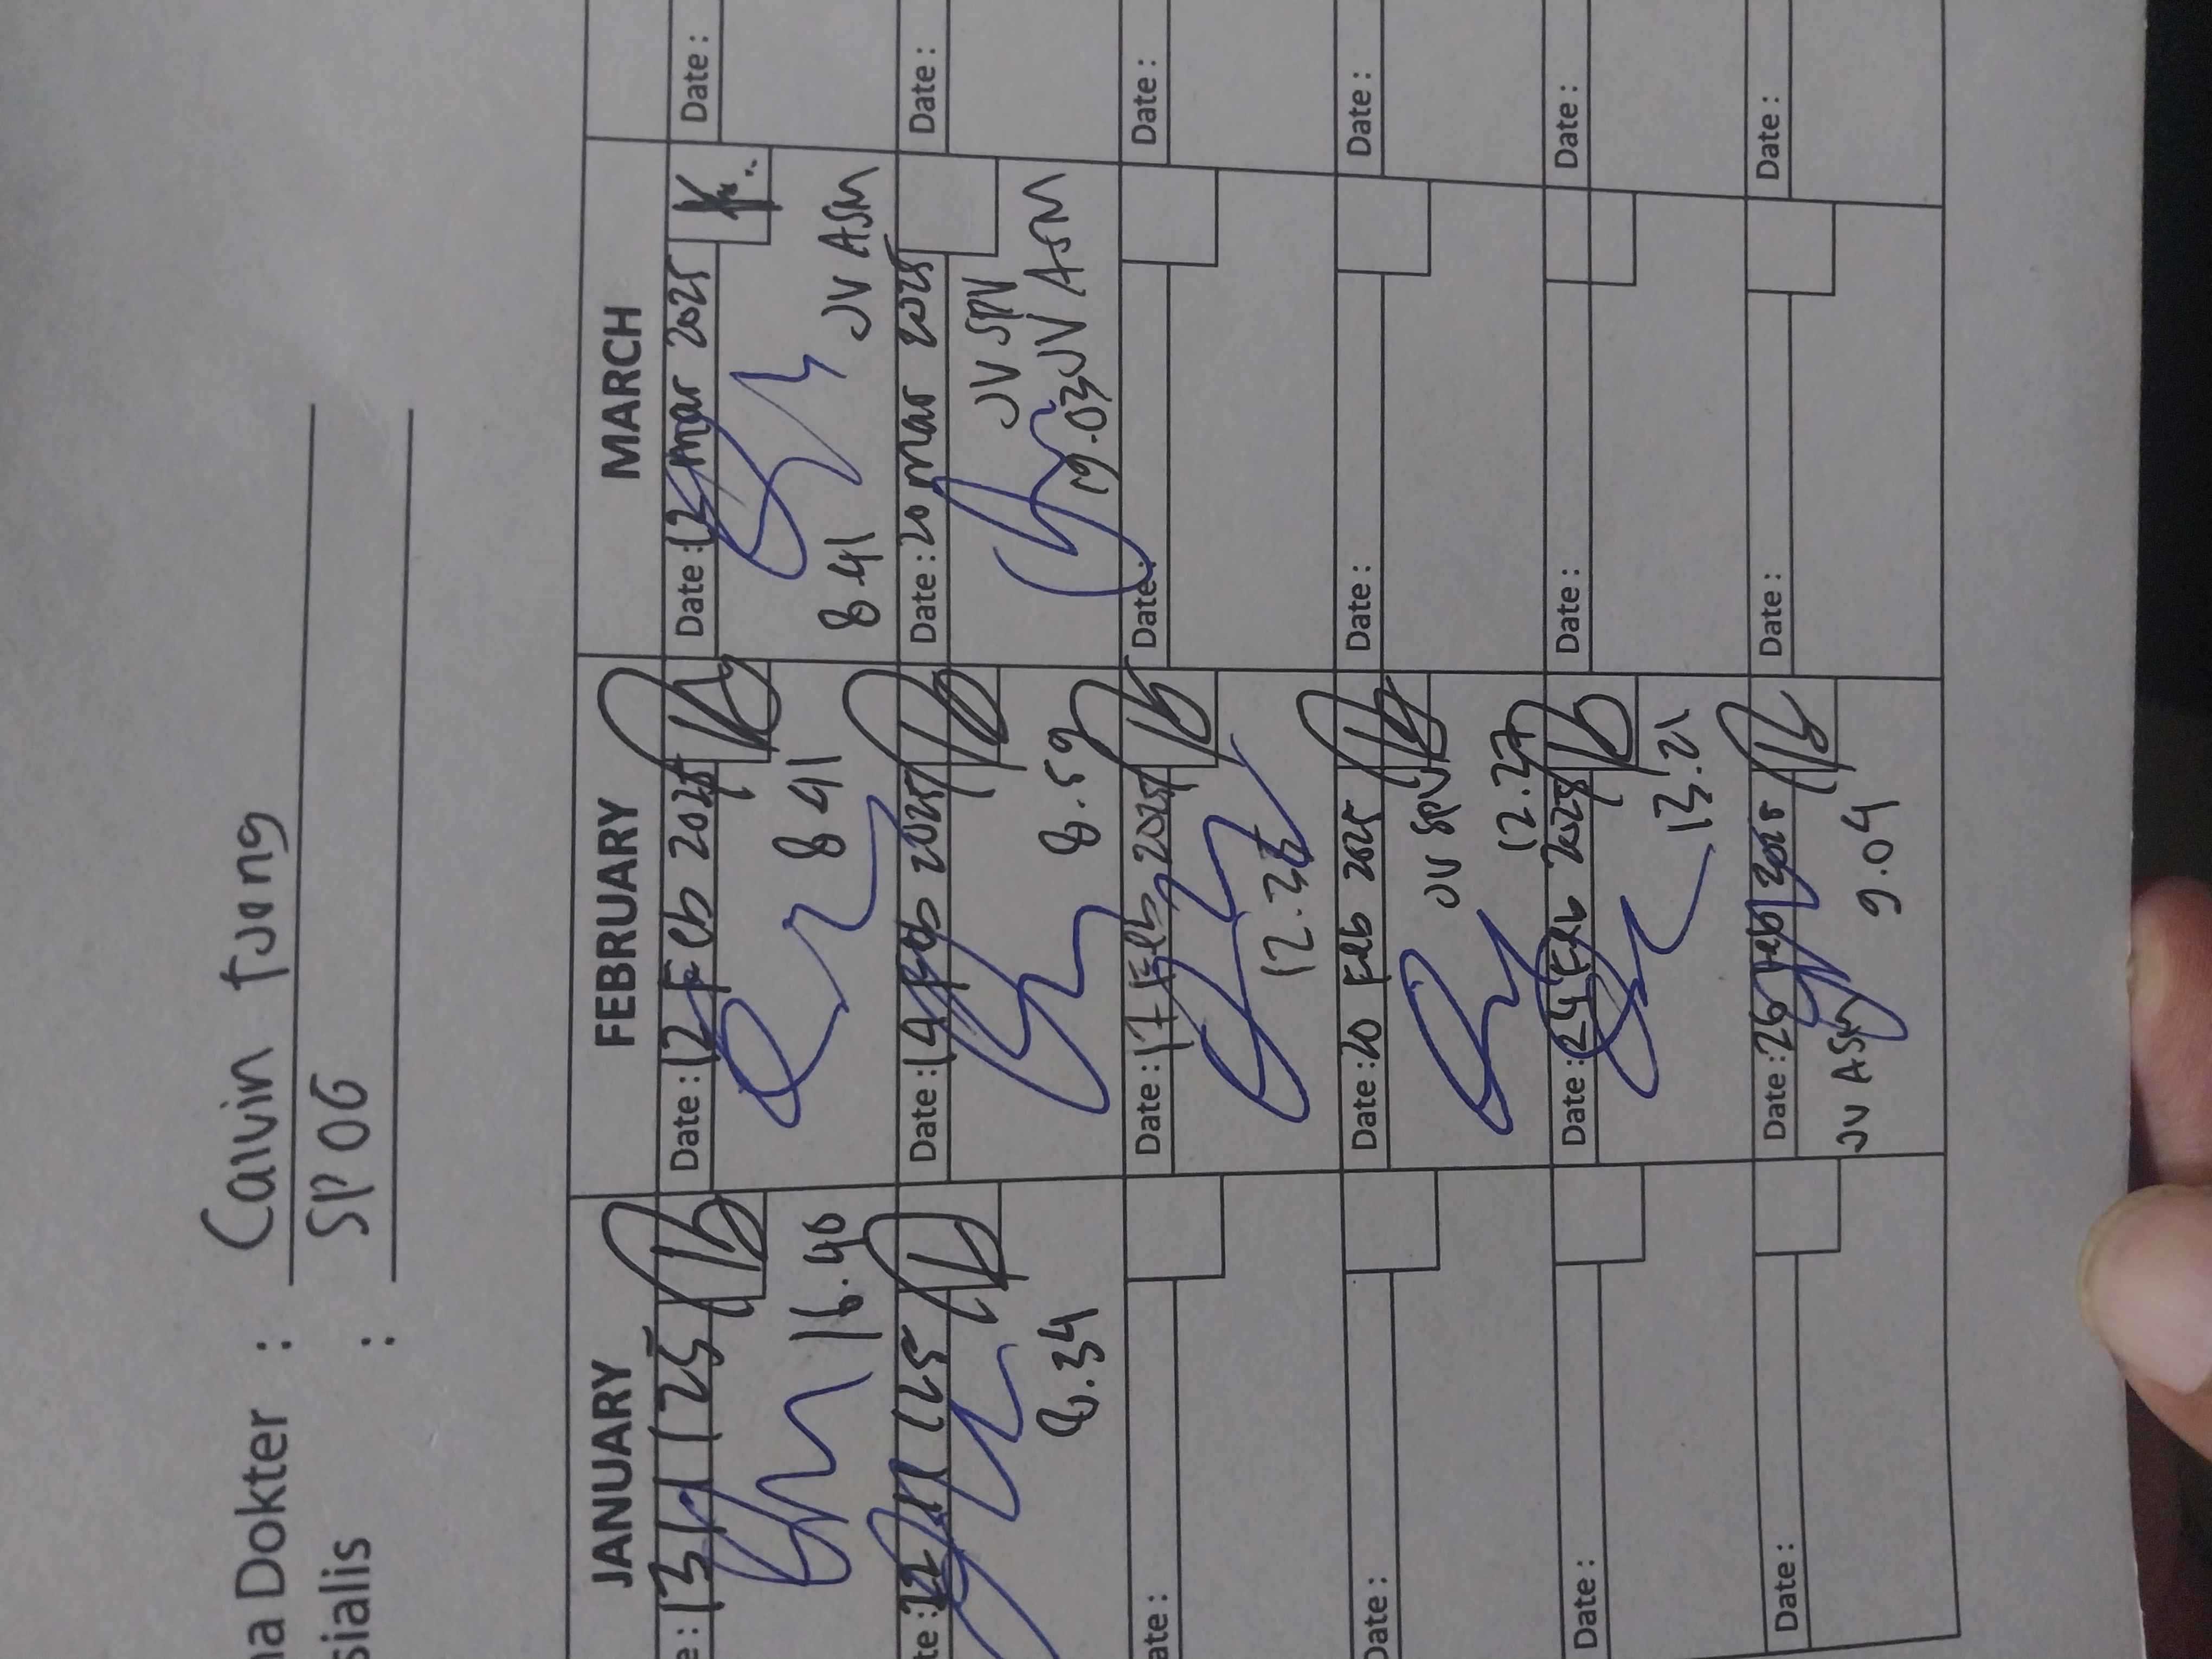 na Dokter : Calvin Tjong
sialis : SP OG
JANUARY FEBRUARY MARCH
e : 13/1/25 Date : 12 Feb 2025 Date : 12 mar 2025 Date :
16.40 8.41 8.41 JV ASM
te : 22/1/25 Date : 14 Feb 2025 Date : 20 mar 2025 Date :
8.34 8.59 JV SPV
19.03 JV ASM
ate : Date : 17 Feb 2025 Date : Date :
12.38
Date : Date : 20 Feb 2025 Date : Date :
JV SPV
12.27
Date : Date : 24 Feb 2025 Date : Date :
13.21
Date : Date : 26 Feb 2025 Date : Date :
JV ASM 9.04